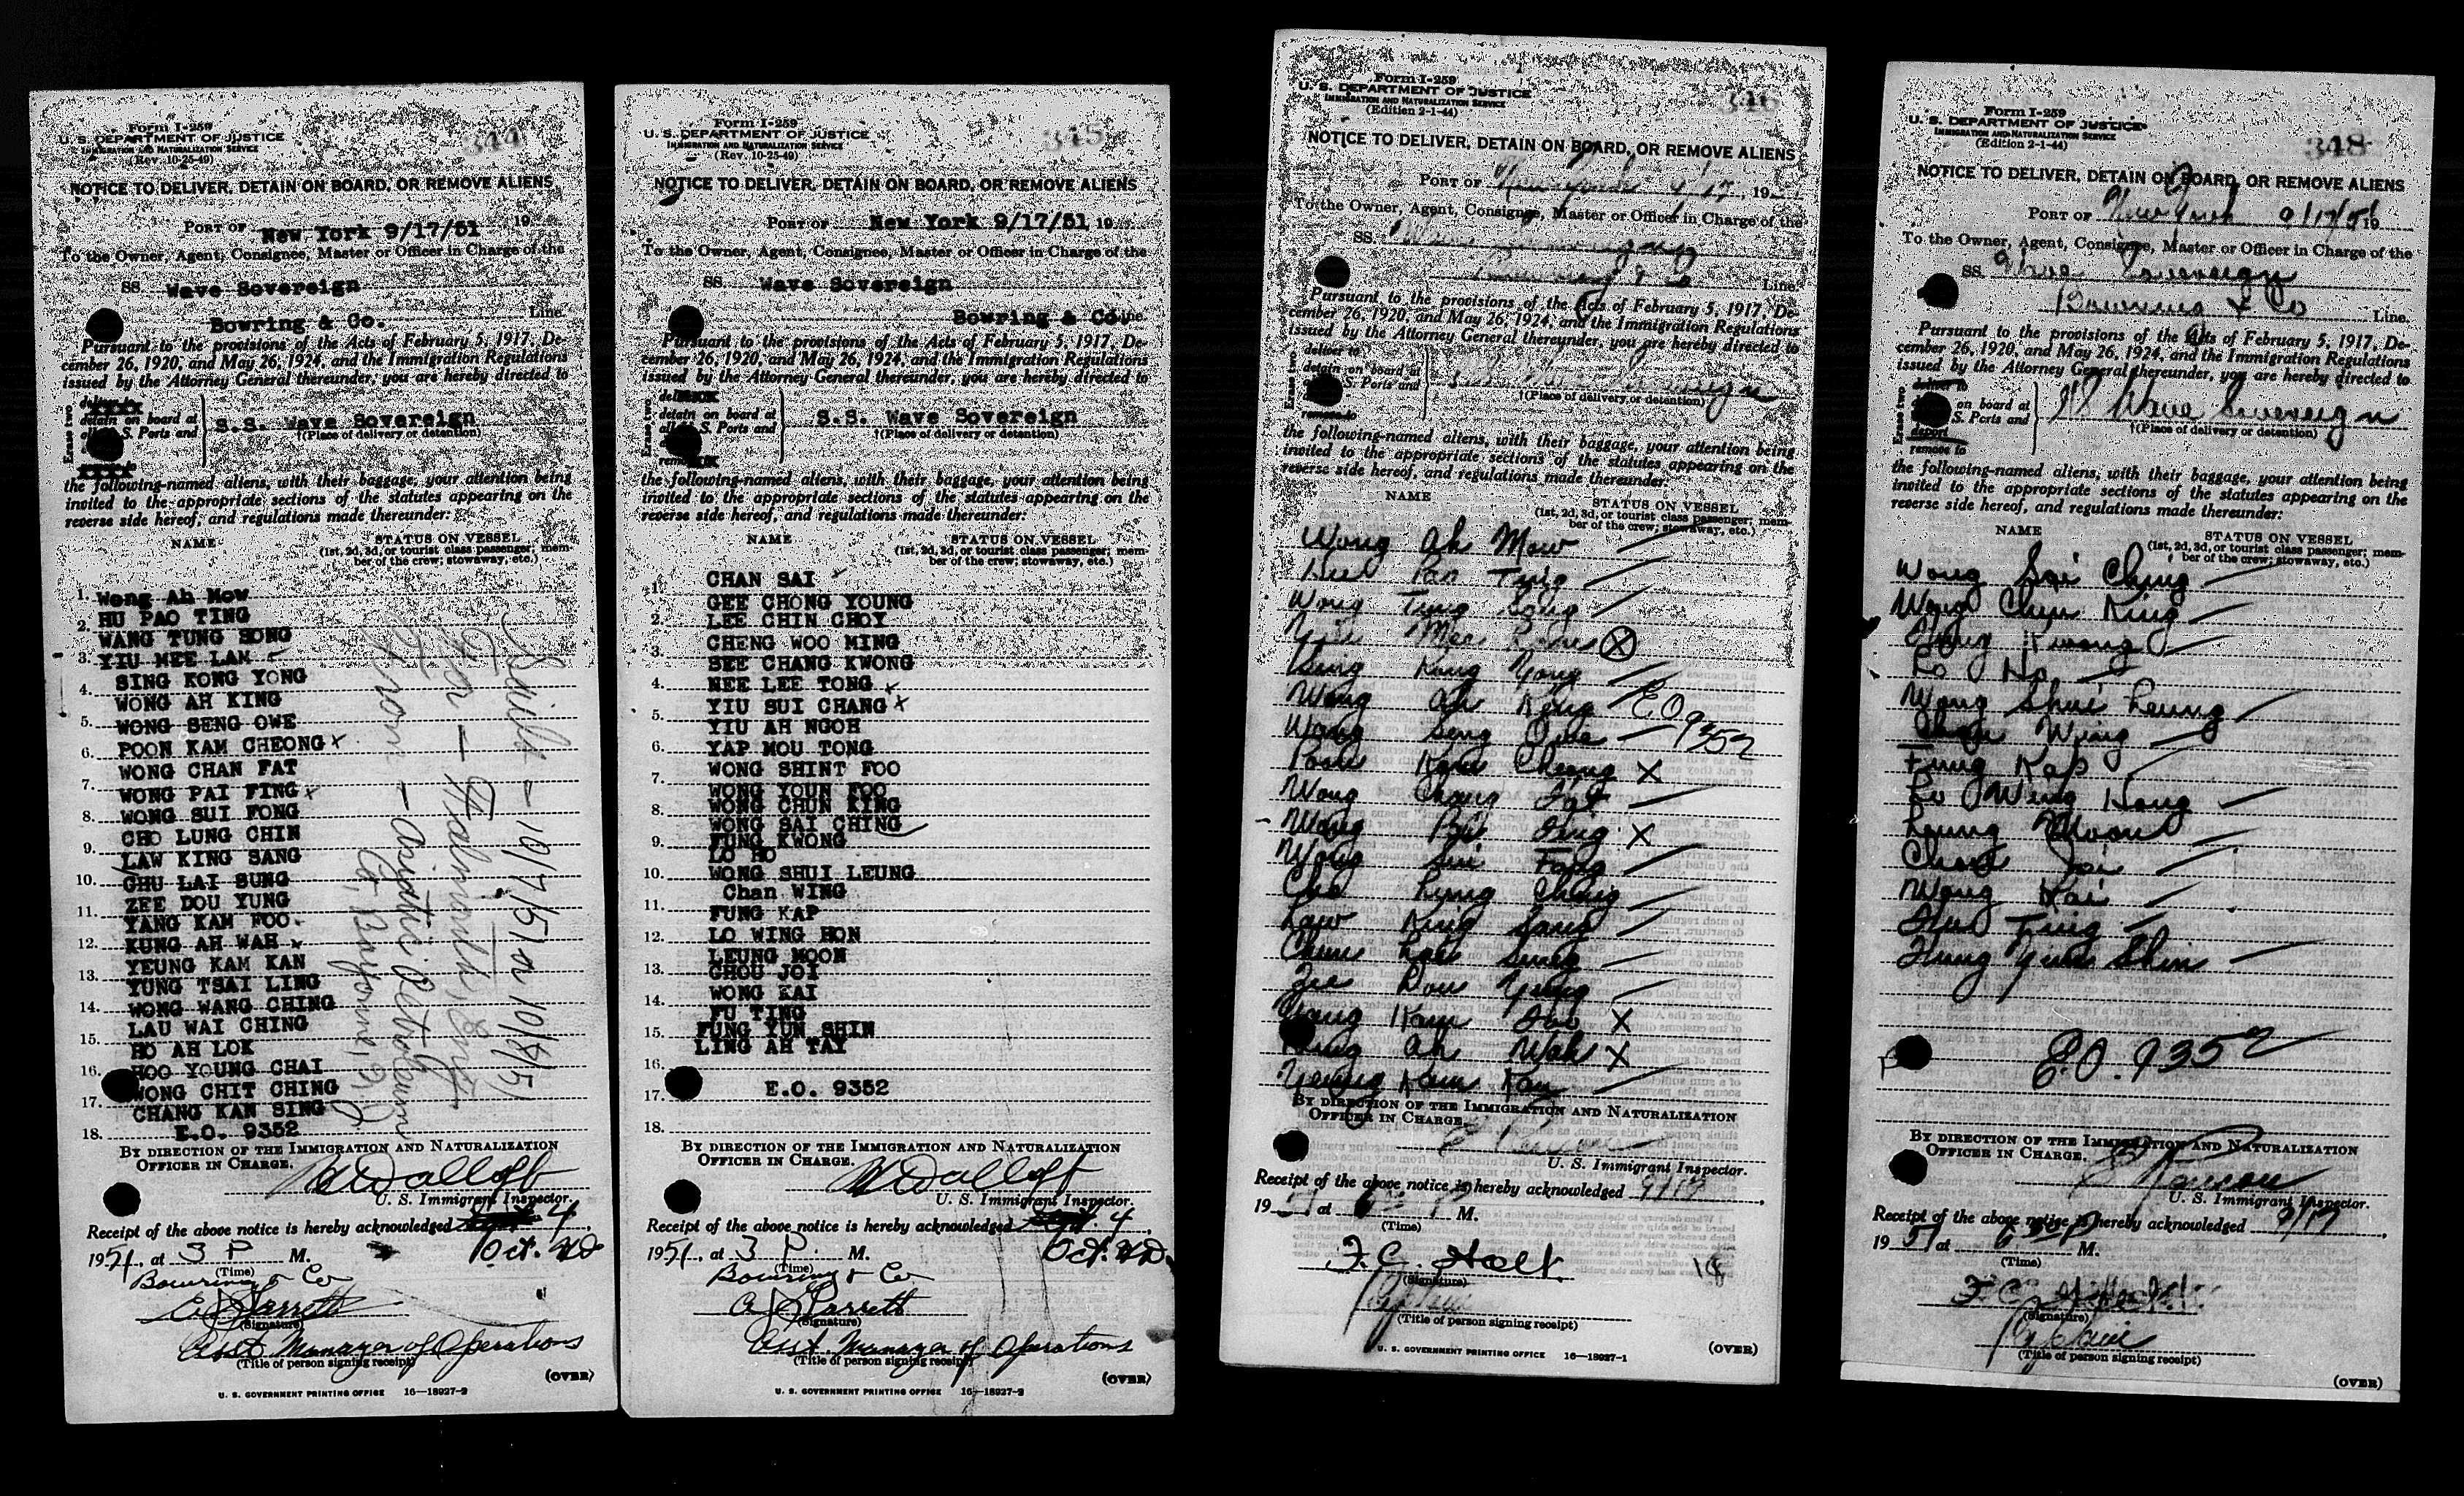 Form I-259
U. S. DEPARTMENT OF JUSTICE
IMMIGRATION AND NATURALIZATION SERVICE
(Rev. 10-25-49)
344
NOTICE TO DELIVER, DETAIN ON BOARD, OR REMOVE ALIENS
PORT OF New York 9/17/51 19
To the Owner, Agent, Consignee, Master or Officer in Charge of the
SS. Wave Sovereign
Bowring & Co. Line.
Pursuant to the provisions of the Acts of February 5, 1917, De-
cember 26, 1920, and May 26, 1924, and the Immigration Regulations
issued by the Attorney General thereunder, you are hereby directed to
Erase two
deliver to
detain on board at
S. Ports and
S.S. Wave Sovereign
†(Place of delivery or detention)
the following-named aliens, with their baggage, your attention being
invited to the appropriate sections of the statutes appearing on the
reverse side hereof, and regulations made thereunder:
NAME STATUS ON VESSEL
(1st, 2d, 3d, or tourist class passenger; mem-
ber of the crew; stowaway, etc.)
1. Wong Ah Mow
HU PAO TING
2. WANG TUNG SONG
3. YIU MEE LAM
SING KONG YONG
4. WONG AH KING
5. WONG SENG OWE
6. POON KAM CHEONG x
WONG CHAN FAT
7. WONG PAI FING x
8. WONG SUI FONG
CHO LUNG CHIN
9. LAW KING SANG
10. CHU LAI SUNG
ZEE DOU YUNG
11. YANG KAM FOO
12. KUNG AH WAH x
YEUNG KAM KAN
13. YUNG TSAI LING
14. WONG WANG CHING
LAU WAI CHING
15. HO AH LOK
16. HOO YOUNG CHAI
WONG CHIT CHING
17. CHANG KAN SING
18. E.O. 9352
Sails - 10/7/51 or 10/8/51
For - Falmouth, Eng.
From - Asiatic Petroleum
Co, Bayonne, N.J.
BY DIRECTION OF THE IMMIGRATION AND NATURALIZATION
OFFICER IN CHARGE.
U. S. Immigrant Inspector.
Receipt of the above notice is hereby acknowledged 4
1951, at 3 P. M. Oct.
(Time)
Bowring & Co
(Signature)
Asst Manager of Operations
(Title of person signing receipt)
(OVER)
U. S. GOVERNMENT PRINTING OFFICE 16—18927-2
Form I-259
U. S. DEPARTMENT OF JUSTICE
IMMIGRATION AND NATURALIZATION SERVICE
(Rev. 10-25-49)
345
NOTICE TO DELIVER, DETAIN ON BOARD, OR REMOVE ALIENS
PORT OF New York 9/17/51 19
To the Owner, Agent, Consignee, Master or Officer in Charge of the
SS. Wave Sovereign
Bowring & Co. Line.
Pursuant to the provisions of the Acts of February 5, 1917, De-
cember 26, 1920, and May 26, 1924, and the Immigration Regulations
issued by the Attorney General thereunder, you are hereby directed to
Erase two
detain on board at
all S. Ports and
S.S. Wave Sovereign
†(Place of delivery or detention)
the following-named aliens, with their baggage, your attention being
invited to the appropriate sections of the statutes appearing on the
reverse side hereof, and regulations made thereunder:
NAME STATUS ON VESSEL
(1st, 2d, 3d, or tourist class passenger; mem-
ber of the crew; stowaway, etc.)
1. CHAN SAI
GEE CHONG YOUNG
2. LEE CHIN CHOY
3. CHENG WOO MING
SEE CHANG KWONG
4. NEE LEE TONG x
5. YIU SUI CHANG x
YIU AH NGOH
6. YAP MOU TONG
7. WONG SHINT FOO
WONG YOUN FOO
8. WONG CHUN KING
WONG SAI CHING
9. FUNG KWONG
LO HO
10. WONG SHUI LEUNG
Chan WING
11. FUNG KAP
12. LO WING HON
LEUNG MOON
13. CHOU JOI
14. WONG KAI
FU TING
15. FUNG YUN SHIN
LING AH TAY
16.
17. E.O. 9352
18.
BY DIRECTION OF THE IMMIGRATION AND NATURALIZATION
OFFICER IN CHARGE.
U. S. Immigrant Inspector.
Receipt of the above notice is hereby acknowledged 4
1951, at 3 P. M. Oct.
(Time)
Bowring & Co
(Signature)
Asst Manager of Operations
(Title of person signing receipt)
(OVER)
U. S. GOVERNMENT PRINTING OFFICE 16—18927-2
Form I-259
U. S. DEPARTMENT OF JUSTICE
IMMIGRATION AND NATURALIZATION SERVICE
(Edition 2-1-44)
346
NOTICE TO DELIVER, DETAIN ON BOARD, OR REMOVE ALIENS
PORT OF New York 9/17, 19
To the Owner, Agent, Consignee, Master or Officer in Charge of the
SS. Wave Sovereign
Bowring & Co Line.
Pursuant to the provisions of the Acts of February 5, 1917, De-
cember 26, 1920, and May 26, 1924, and the Immigration Regulations
issued by the Attorney General thereunder, you are hereby directed to
Erase two
deliver to
detain on board at
S. Ports and
remove to
SS Wave Sovereign
†(Place of delivery or detention)
the following-named aliens, with their baggage, your attention being
invited to the appropriate sections of the statutes appearing on the
reverse side hereof, and regulations made thereunder:
NAME STATUS ON VESSEL
(1st, 2d, 3d, or tourist class passenger; mem-
ber of the crew; stowaway, etc.)
Wong Ah Mow
Hu Pao Ting
Wong Tung Song
Yiu Mee X
Sing Kong Yong
Wong Ah King E.O
Wong Seng Owe 9352
Poon Kam Cheong X
Wong Chang Fat
Wong Pai Fing X
Wong Sui Fong
Cho Lung Ching
Law King Sang
Chun Lai Sung
Zee Dou Yung
Yang Kam Foo X
Kung Ah Wah X
Yeung Kam Kan
BY DIRECTION OF THE IMMIGRATION AND NATURALIZATION
OFFICER IN CHARGE.
U. S. Immigrant Inspector.
Receipt of the above notice is hereby acknowledged 9/17
1951 at M.
(Time)
F.C. Holt.
(Signature)
(Title of person signing receipt)
18
(OVER)
U. S. GOVERNMENT PRINTING OFFICE 16—18927-1
Form I-259
U. S. DEPARTMENT OF JUSTICE
IMMIGRATION AND NATURALIZATION SERVICE
(Edition 2-1-44)
348
NOTICE TO DELIVER, DETAIN ON BOARD, OR REMOVE ALIENS
PORT OF New York 9/17/51 19
To the Owner, Agent, Consignee, Master or Officer in Charge of the
SS. Wave Sovereign
Bowring & Co Line.
Pursuant to the provisions of the Acts of February 5, 1917, De-
cember 26, 1920, and May 26, 1924, and the Immigration Regulations
issued by the Attorney General thereunder, you are hereby directed to
Erase two
deliver to
on board at
S. Ports and
deport
remove to
SS Wave Sovereign
†(Place of delivery or detention)
the following-named aliens, with their baggage, your attention being
invited to the appropriate sections of the statutes appearing on the
reverse side hereof, and regulations made thereunder:
NAME STATUS ON VESSEL
(1st, 2d, 3d, or tourist class passenger; mem-
ber of the crew; stowaway, etc.)
Wong Sai Ching
Wong Chun King
Fung Kwong
Lo Ho
Wong Shui Leung
Chan Wing
Fung Kap
Lo Wing Hong
Leung Moon
Chou Joi
Wong Kai
Fu Ting
Fung Yun Shin
E.O. 9352
BY DIRECTION OF THE IMMIGRATION AND NATURALIZATION
OFFICER IN CHARGE.
U. S. Immigrant Inspector.
Receipt of the above notice is hereby acknowledged 9/17
1951 at M.
(Time)
F.C.
(Signature)
(Title of person signing receipt)
(OVER)